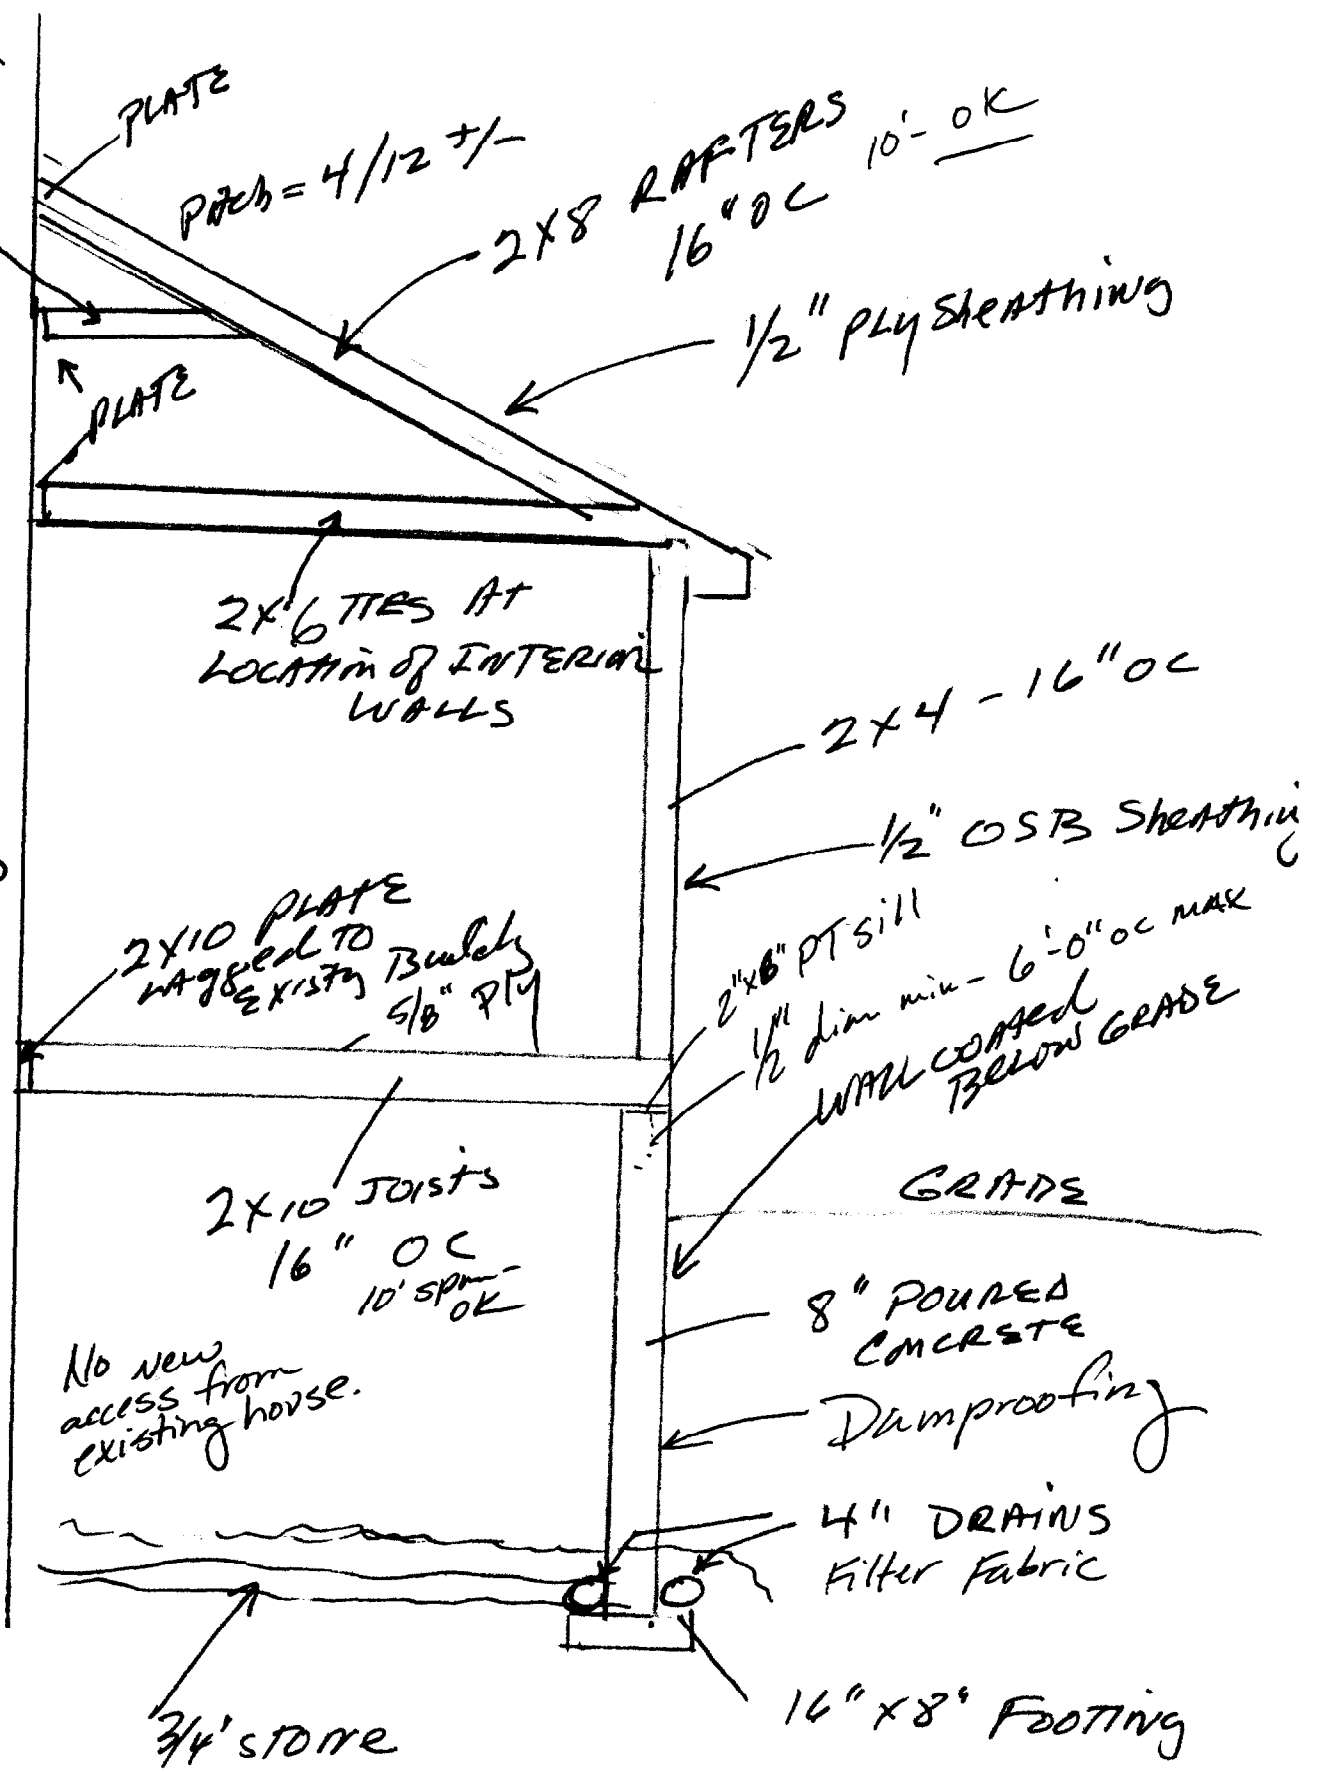 PLATE
Pitch = 4/12 +/-
2X8 RAFTERS
16" OC
10'- OK
1/2" PLY Sheathing
PLATE
2X6 TIES At
LOCATION of INTERIOR
WALLS
2X4 - 16" OC
1/2" OSB Sheathing
2X10 PLATE
LAgged TO
Existg Buildg
5/8" Ply
2"x8" PT sill
1/2" diam min - 6'-0" OC MAX
WALL COATED
BELOW GRADE
GRADE
2X10 JOISTS
16" OC
10' span-
OK
8" POURED
CONCRETE
No new
access from
existing house.
Damproofing
4" DRAINS
Filter Fabric
3/4' stone
16" x 8" FOOTING